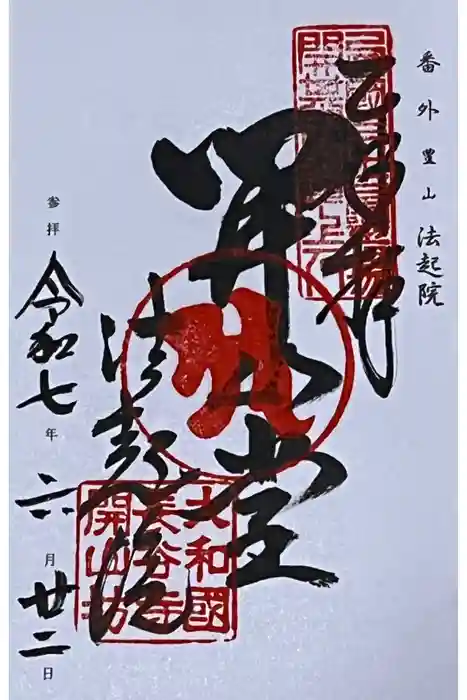 番外 豊山 法起院
奉拝
開山堂
法起院
大和國
長谷寺
開山坊
参拝
令和七年六月廿二日